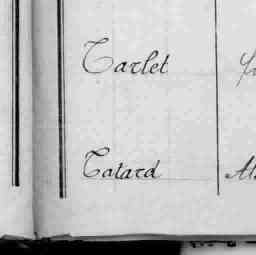 Tarlet
Tatard